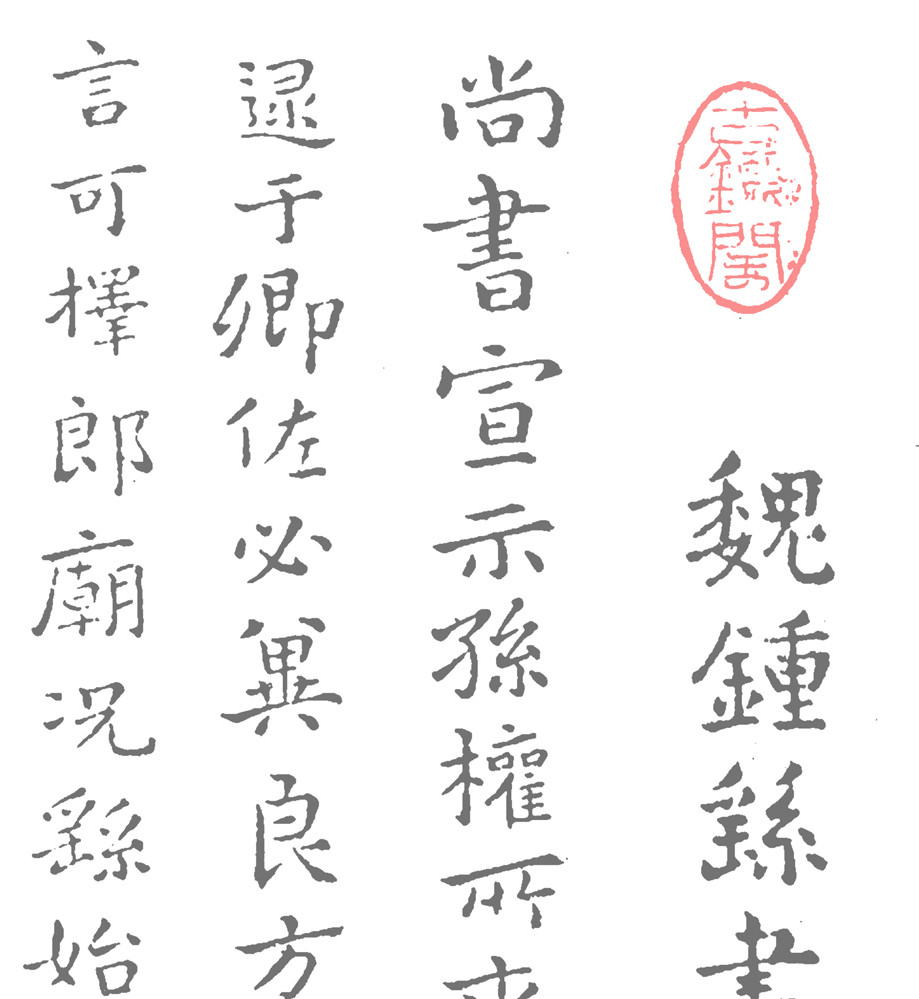 魏鍾繇書
尚書宣示孫權所求
逮于卿佐必冀良方
言可擇郎廟况繇始